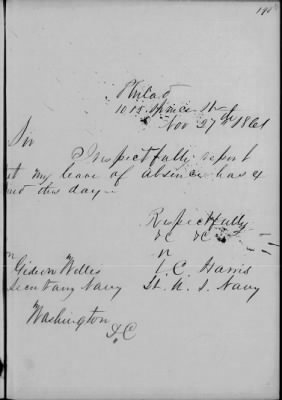 Philad
1015 Spruce St
Nov 27th 1861
Sir
I respectfully report
t my leave of absence has ex
this day
Respectfully
&c &c
n
Gideon Welles
T. C. Harris
Secretary Navy
Lt. U. S. Navy
Washington
D C